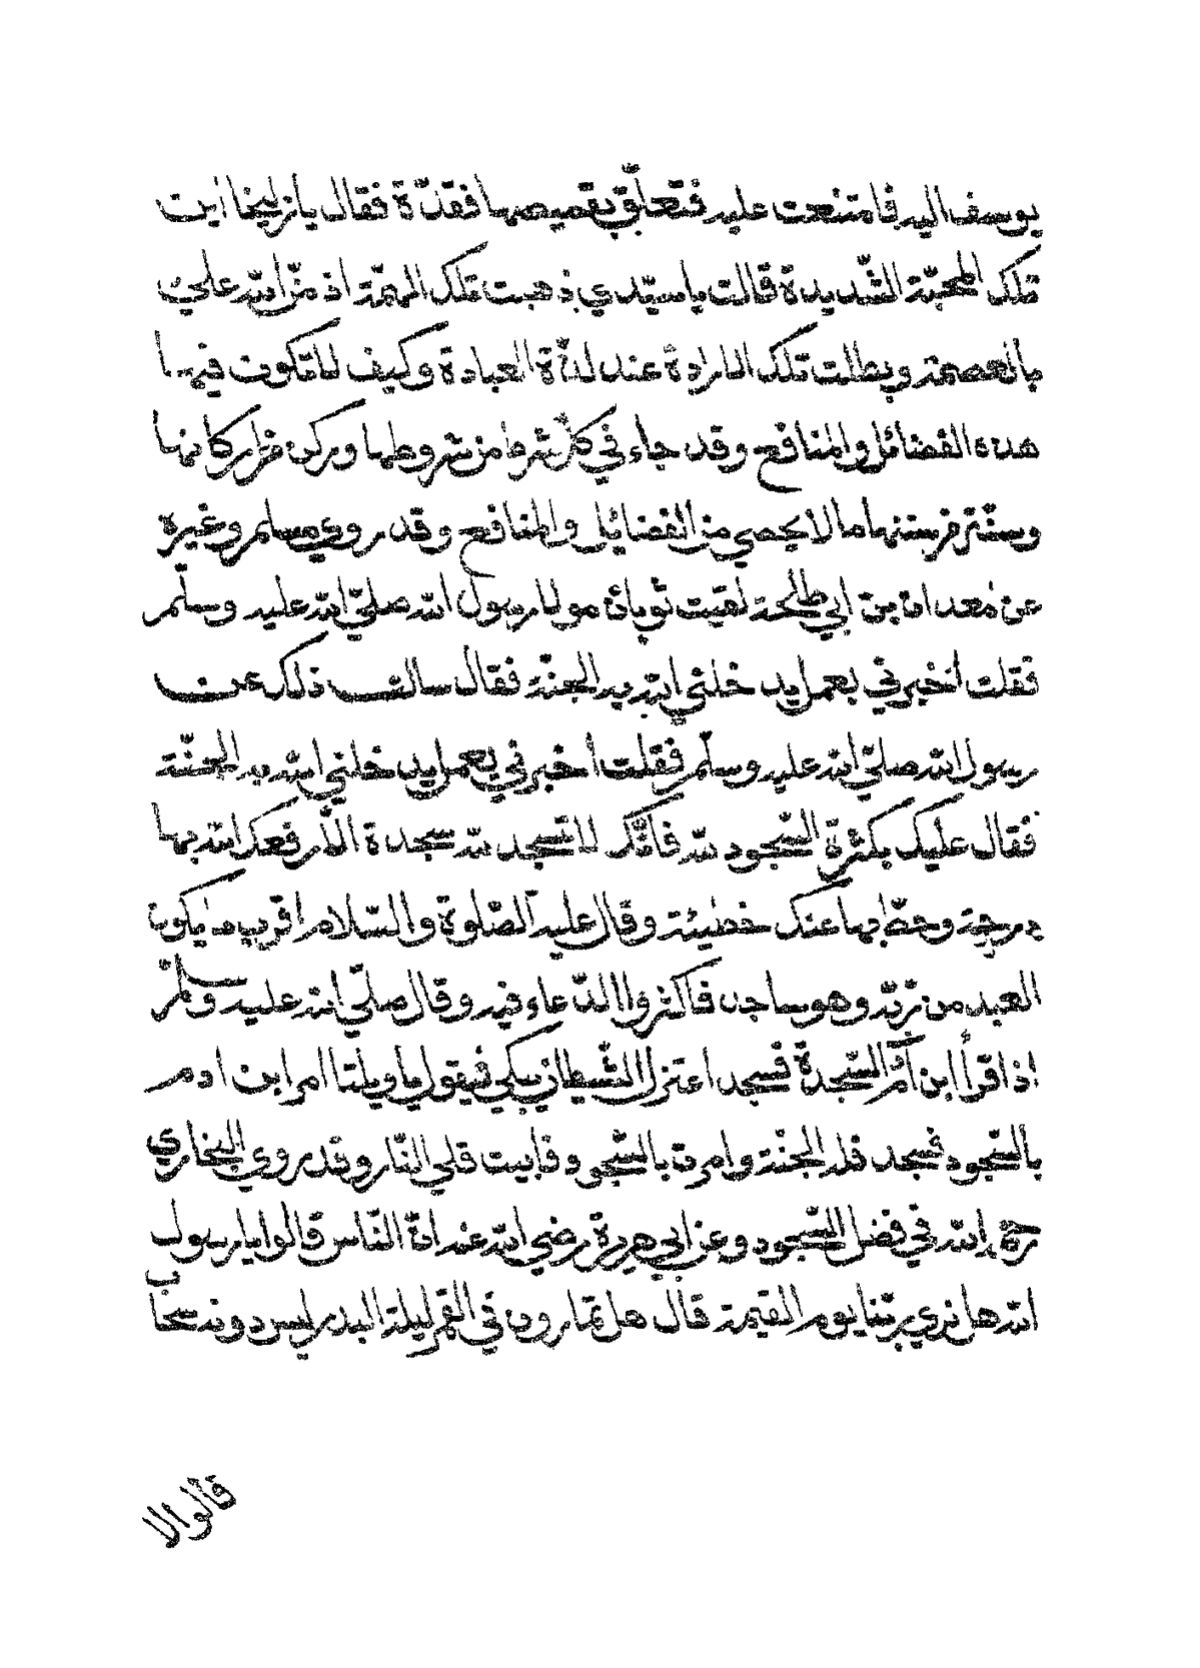 يوسف اليه فامتنعت عليه فتعلّق بقميصها فقدّة فقال يا زليخا اين
تلك المحبّة الشّديدة قالت يا سيّدي ذهبت تلك المهمّة اذ منّ الله عليّ
بالعصمة وبطلت تلك الارادة عند لذّة العبادة وكيف لا تكون فيها
هذه الفضائل والمنافع وقد جاء في كلّ شرط من شروطها وركن من اركانها
وسنّة من سننها ما لا يحصي من الفضائل والمنافع وقد روي مسلم وغيره
عن معدان بن ابي طلحة لقيت ثوبان مولا رسول الله صلّي الله عليه وسلّم
فقلت أخبرني بعمل يدخلني الله به الجنّة فقال سالت ذلك عن
رسول الله صلّي الله عليه وسلّم فقلت أخبرني بعمل يدخلني الله به الجنّة
فقال عليك بكثرة السّجود لله فانّك لا تسجد لله سجدة الّا رفعك الله بها
درجة وحطّ بها عنك خطيئة وقال عليه الصّلوة والسّلام اقرب ما يكون
العبد من ربّه وهو ساجد فاكثروا الدّعاء فيه وقال صلّي الله عليه وسلّم
اذا قرأ ابن آدم السّجدة فسجد اعتزل الشّيطان يبكي فيقول يا ويلتا امر ابن ادم
بالسّجود فسجد فله الجنّة وامرت بالسّجود فابيت فلي النّار وقد روي البخاري
رحمه الله في فضل السّجود وعن ابي هريرة رضي الله عنه انّ النّاس قالوا يا رسول
الله هل نري ربّنا يوم القيمة قال هل تمارون في القمر ليلة البدر ليس دونه سحاب
قالوا لا